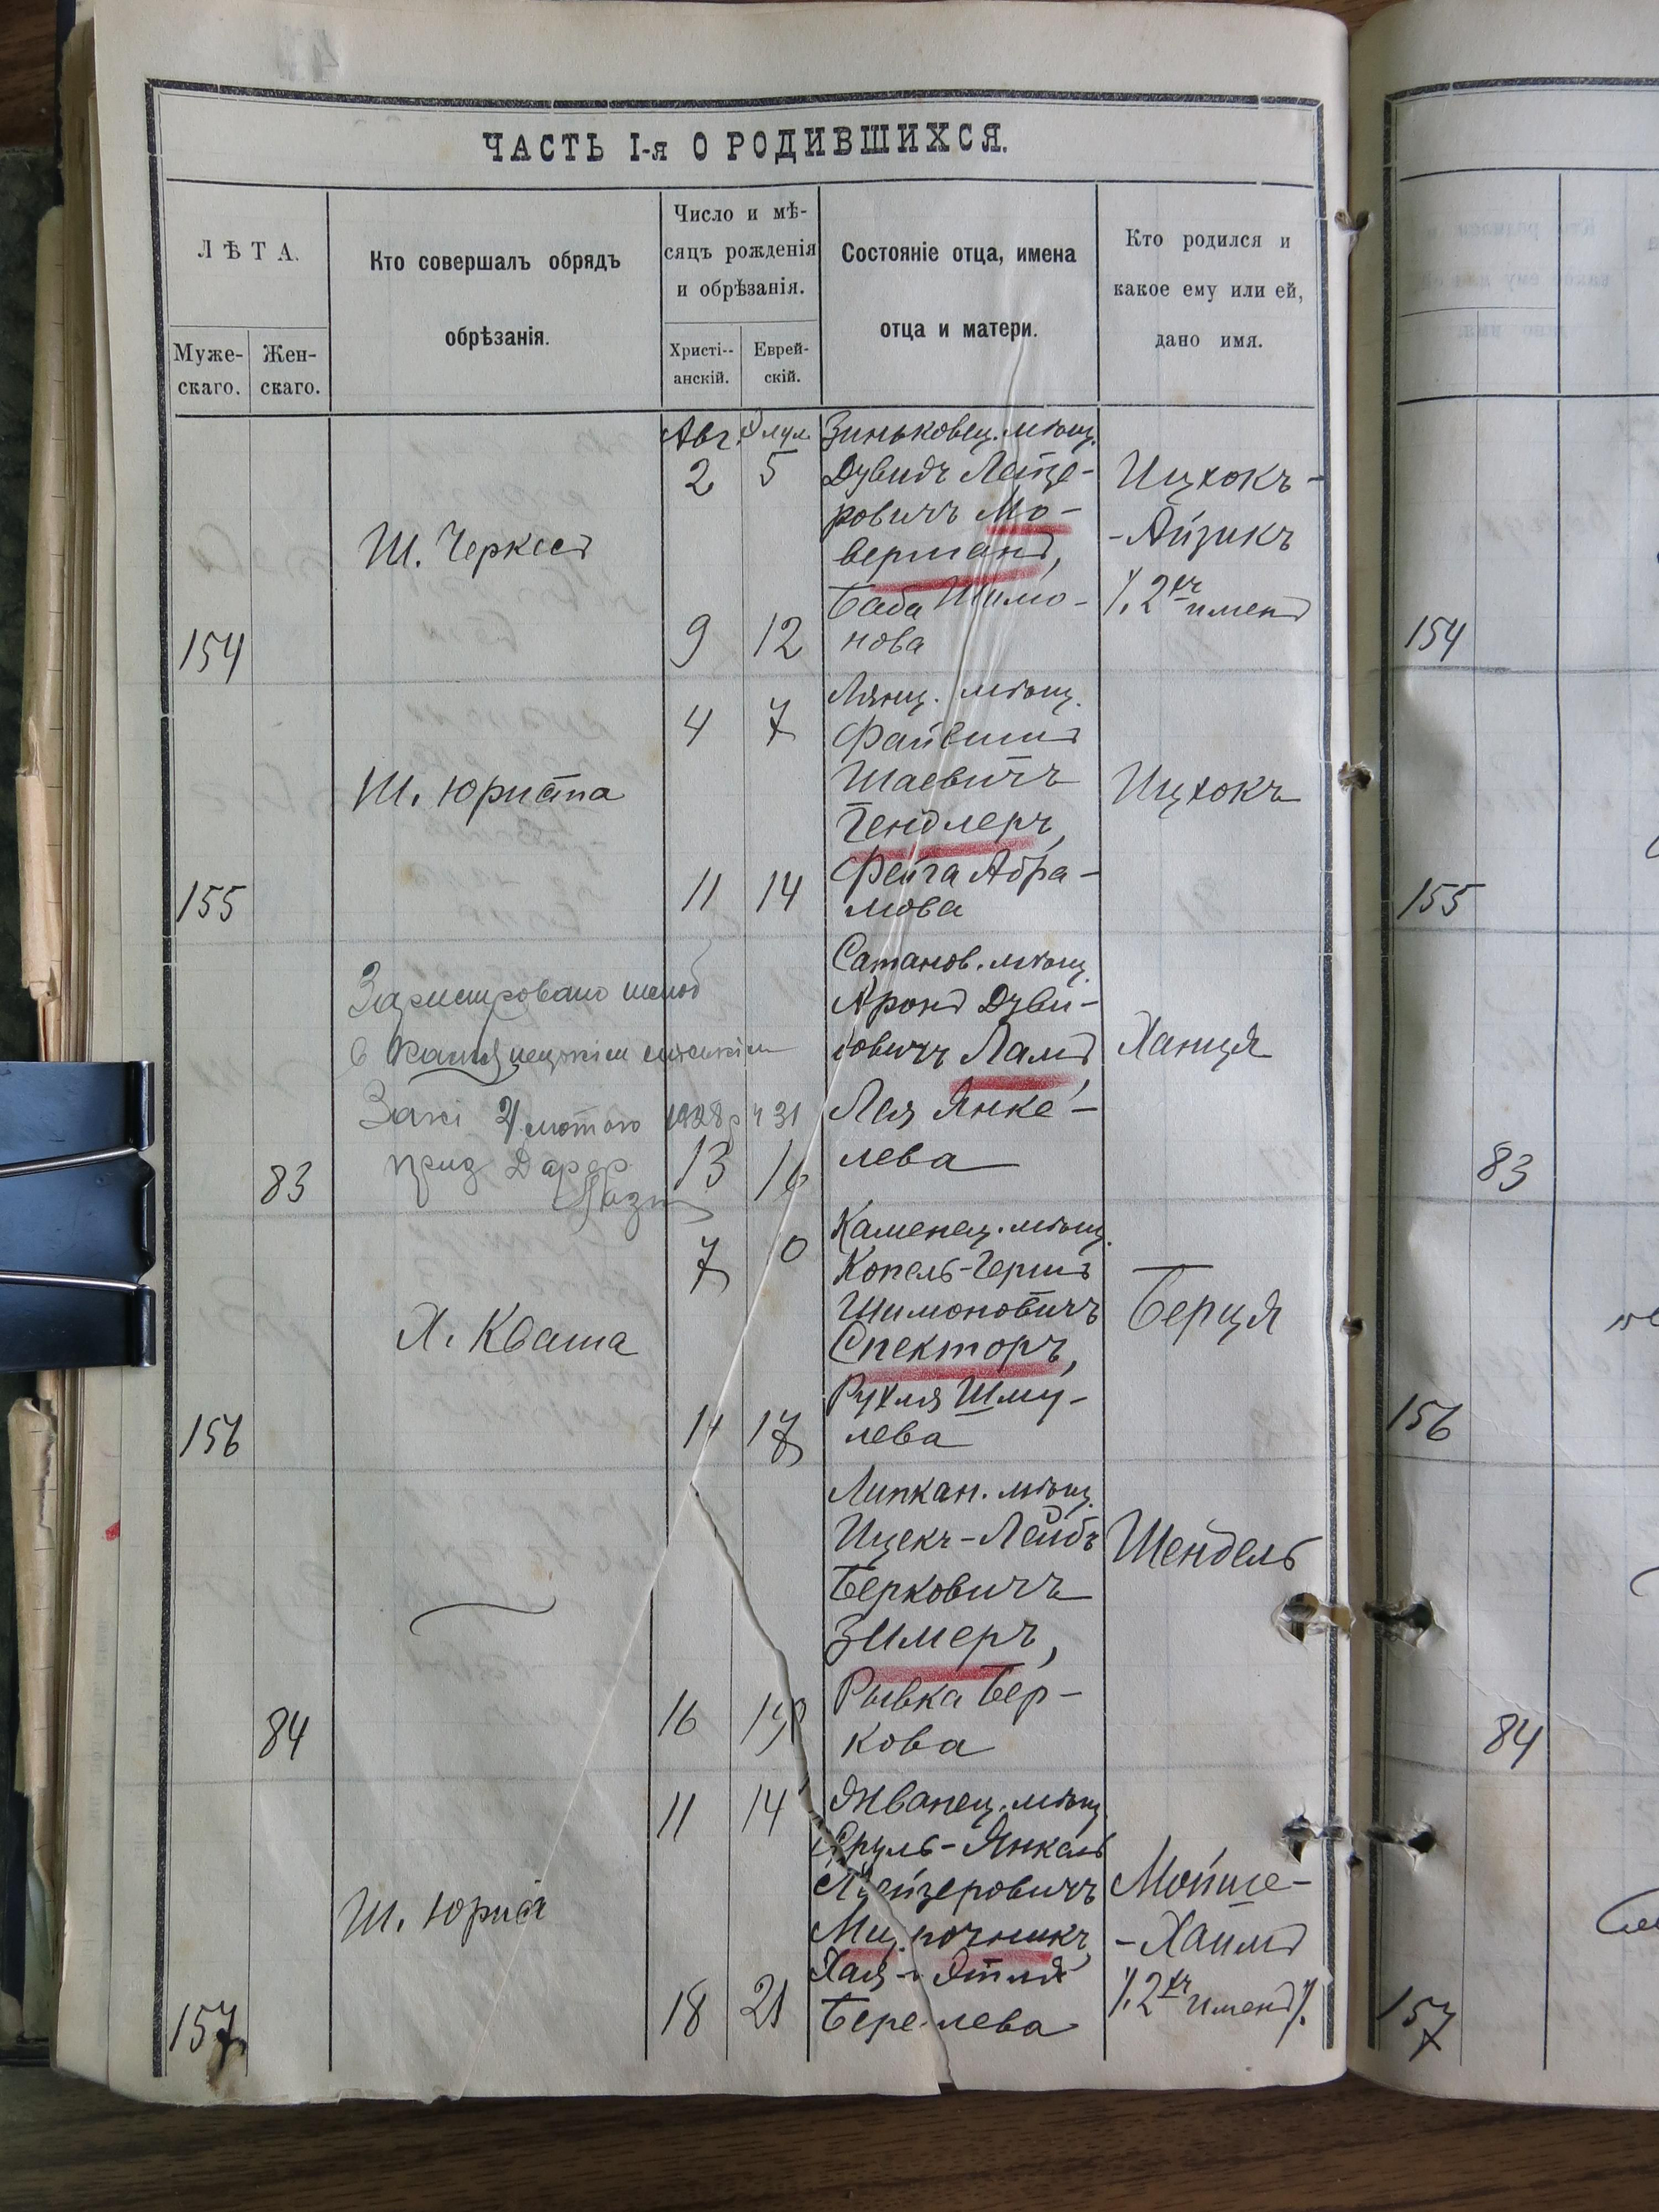 ЧАСТЬ I-я О РОДИВШИХСЯ.
ЛѢТА.
Муже-
скаго.
Жен-
скаго.
Кто совершалъ обрядъ
обрѣзанія.
Число и мѣ-
сяцъ рожденія
и обрѣзанія.
Христі--
анскій.
Еврей-
скій.
Состояніе отца, имена
отца и матери.
Кто родился и
какое ему или ей,
дано имя.
154
Ш. Черкес
Авг.
2
9
Элул.
5
12
Зиньковец. мѣщ.
Дувидъ Лейзе-
ровичъ Мо-
верманъ,
Баба Шимо-
нова
Ицхокъ-
-Айзикъ
/. 2хъ именъ
155
Ш. Юриста
4
11
7
14
Лянц. мѣщ.
Файвишъ
Шаевичъ
Гендлеръ,
Фейга Абра-
мова
Ицхокъ
83
лютого 1928 р ч 31
13
16
Сатанов. мѣщ.
Аронъ Дуви-
довичъ Ламъ,
Лея Янке-
лева
Ханця
156
Х. Кваша
7
14
10
17
Каменец. мѣщ.
Копель-Гершъ
Шимоновичъ
Спекторъ,
Рухля Шму-
лева
Берця
84
16
19
Липкан. мѣщ.
Ицекъ-Лейбъ
Берковичъ
Зимеръ,
Рывка Бер-
кова
Шендель
157
Ш. Юрист
11
18
14
21
Жванец. мѣщ.
Сруль-Янкель
Лейзеровичъ
Хая-Этля
Берелева
Мойше-
-Хаимъ
/. 2хъ именъ /.
154
155
83
156
84
157